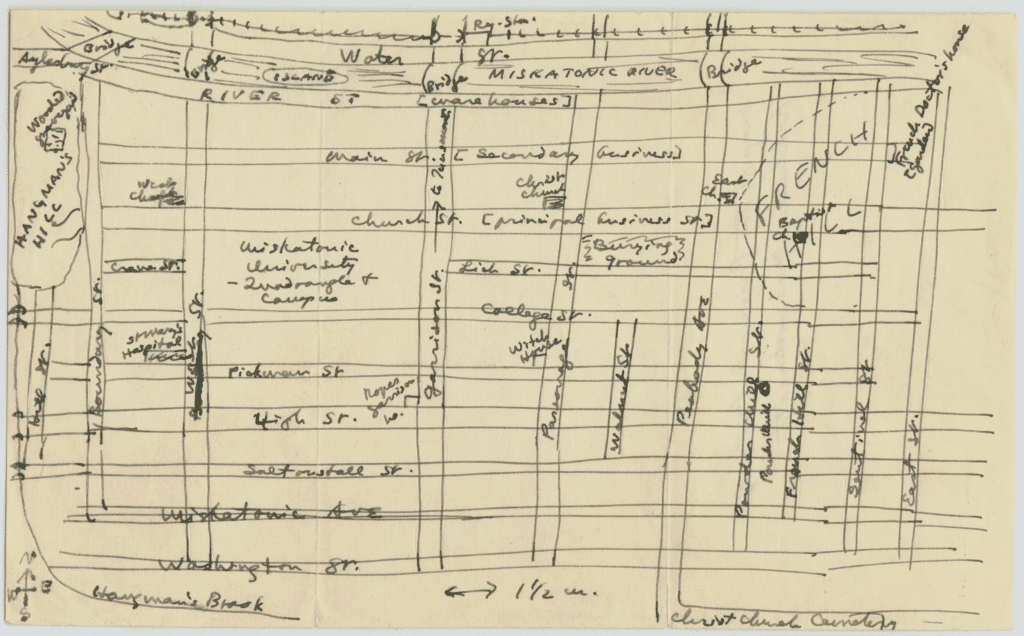 Ry. Sta.
Bridge
Aylesbury St.
Water St.
Bridge
ISLAND
Bridge
MISKATONIC RIVER
Bridge
RIVER ST
[warehouses]
French Doctor's house
[garden]
Wooded
HANGMAN'S
HILL
Main St. [Secondary business]
FRENCH
HILL
Christ
Church
East
Ch.
Church St. [principal business st.]
Baptist
Ch.
Miskatonic
University
- Quadrangle &
Campus
Burying
ground
Crane St.
Lich St.
College St.
St Mary's
Hospital
Witch
House
Pickman St
Ropes
garrison
W.
High St.
Hill St.
Boundary St.
West St.
Garrison St.
Parsonage St.
Walnut St.
Peabody Ave
Powder Mill St.
Powder Mill
French Hill St.
Sentinel St.
East St.
Saltonstall St.
Miskatonic Ave
Washington St.
N
W E
S
Hangman's Brook
1 1/2 m.
Christchurch Cemetery